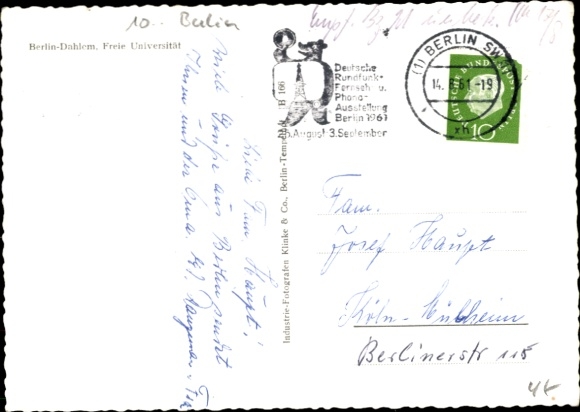 10.- Berlin
Berlin-Dahlem, Freie Universität
Deutsche
Rundfunk-
Fernseh- u.
Phono-
Ausstellung
Berlin 1961
August-3.September
(1) BERLIN SW
14. 8.61.-19
xh
DEUTSCHE BUNDESPOST
10
Industrie-Fotografen Klinke & Co., Berlin-Tempelhof B 166
Liebe Fam. Haupt!
Viele Grüße aus Berlin sendet
Ihnen und der Oma
Fam.
Josef Haupt
Köln-Mülheim
Berlinerstr 115